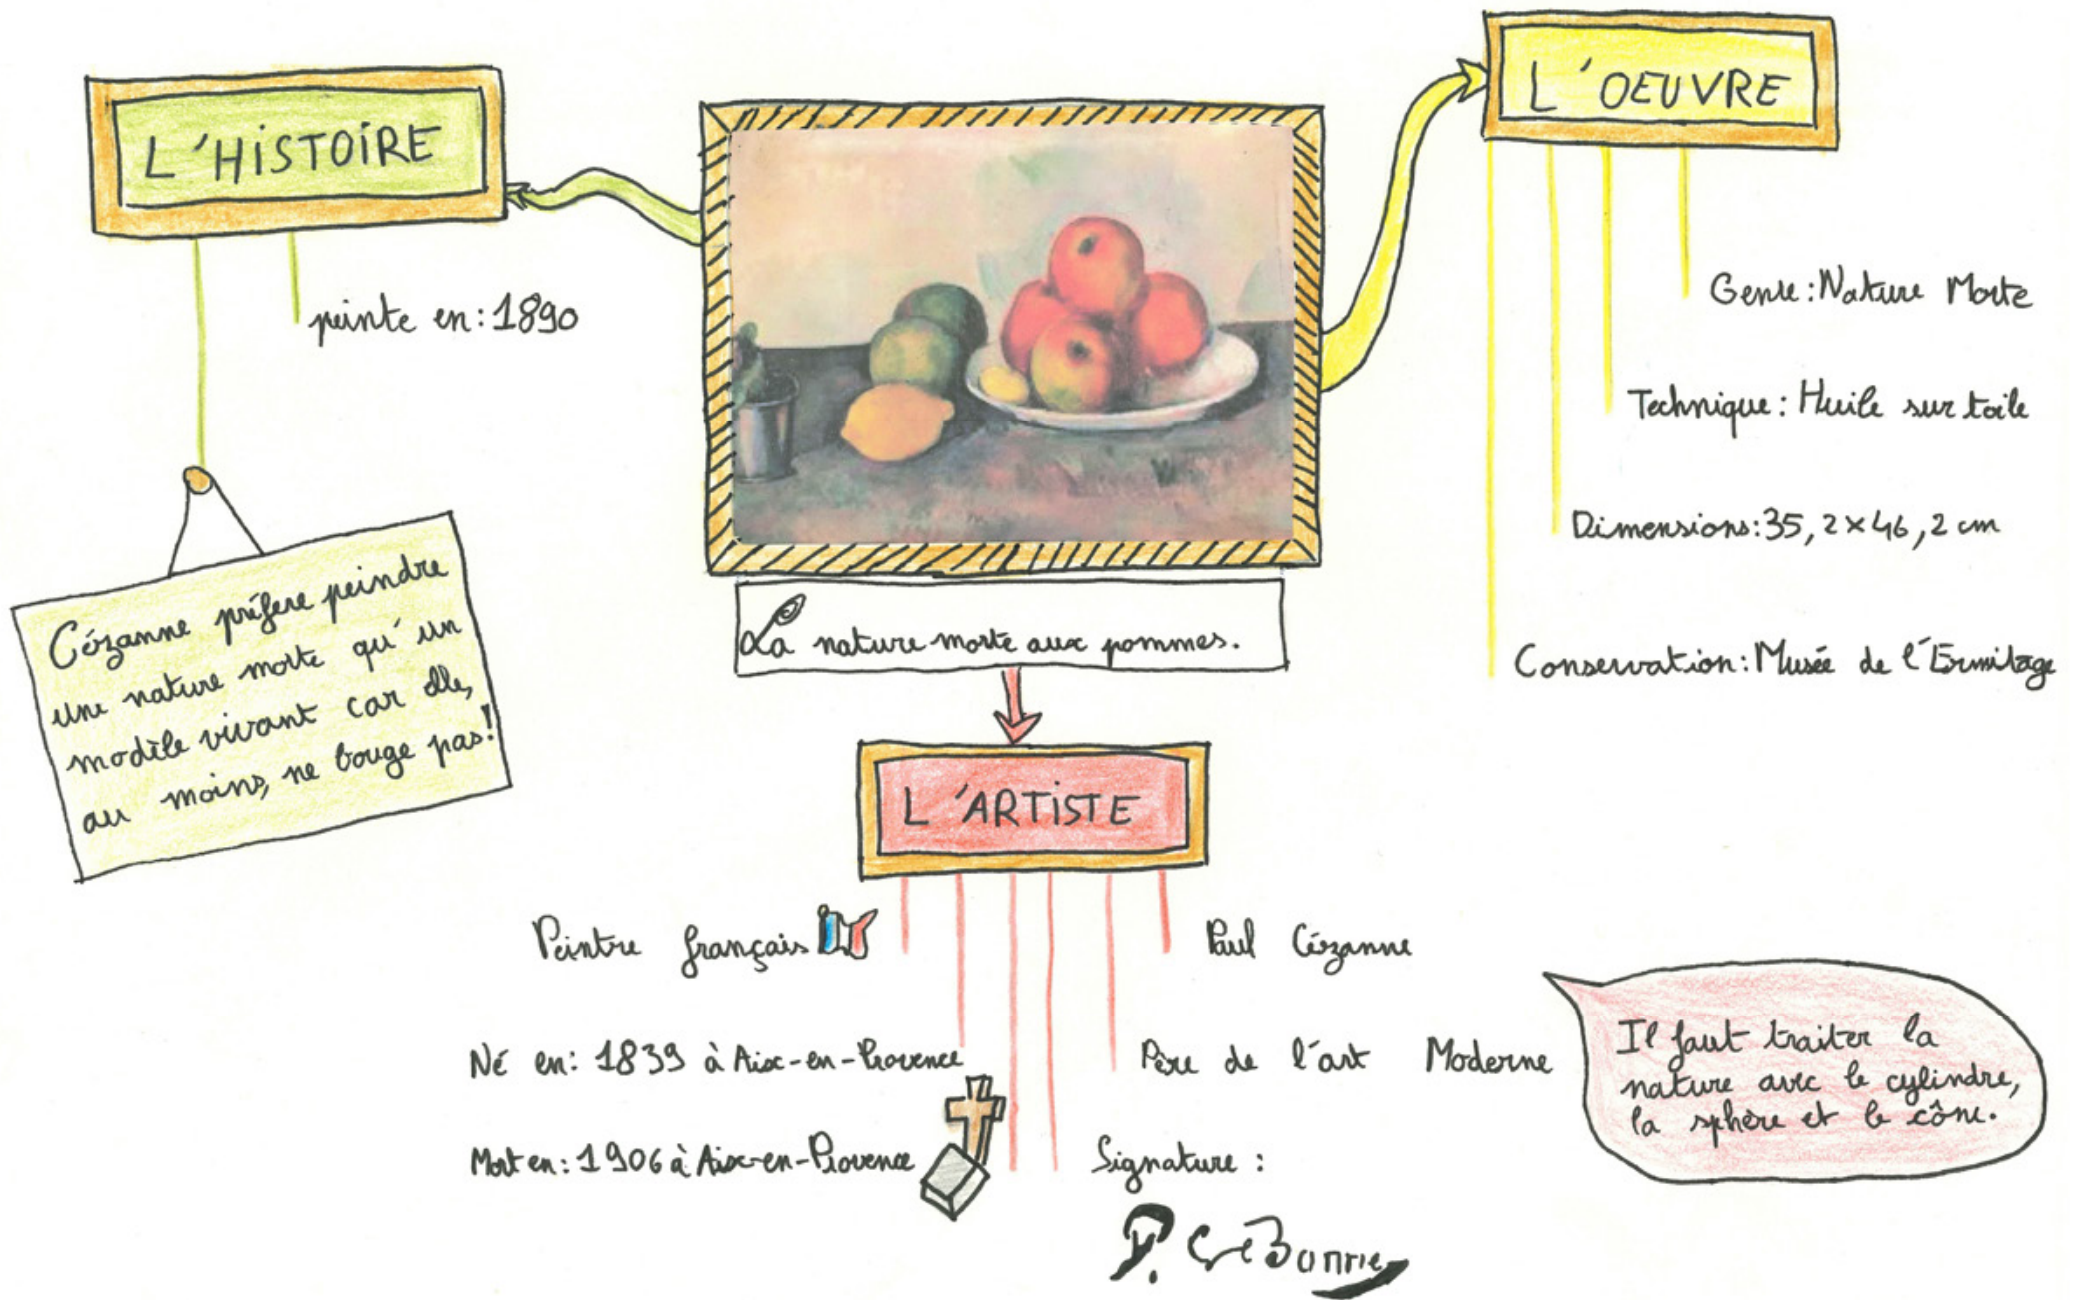 L'HISTOIRE
peinte en: 1890
Cézanne préfère peindre
une nature morte qu'un
modèle vivant car elle,
au moins, ne bouge pas!
La nature morte aux pommes.
L'OEUVRE
Genre: Nature Morte
Technique: Huile sur toile
Dimensions: 35,2 x 46,2 cm
Conservation: Musée de l'Ermitage
L'ARTISTE
Peintre français
Né en: 1839 à Aix-en-Provence
Mort en: 1906 à Aix-en-Provence
Paul Cézanne
Père de l'art Moderne
Signature :
Il faut traiter la
nature avec le cylindre,
la sphère et le cône.